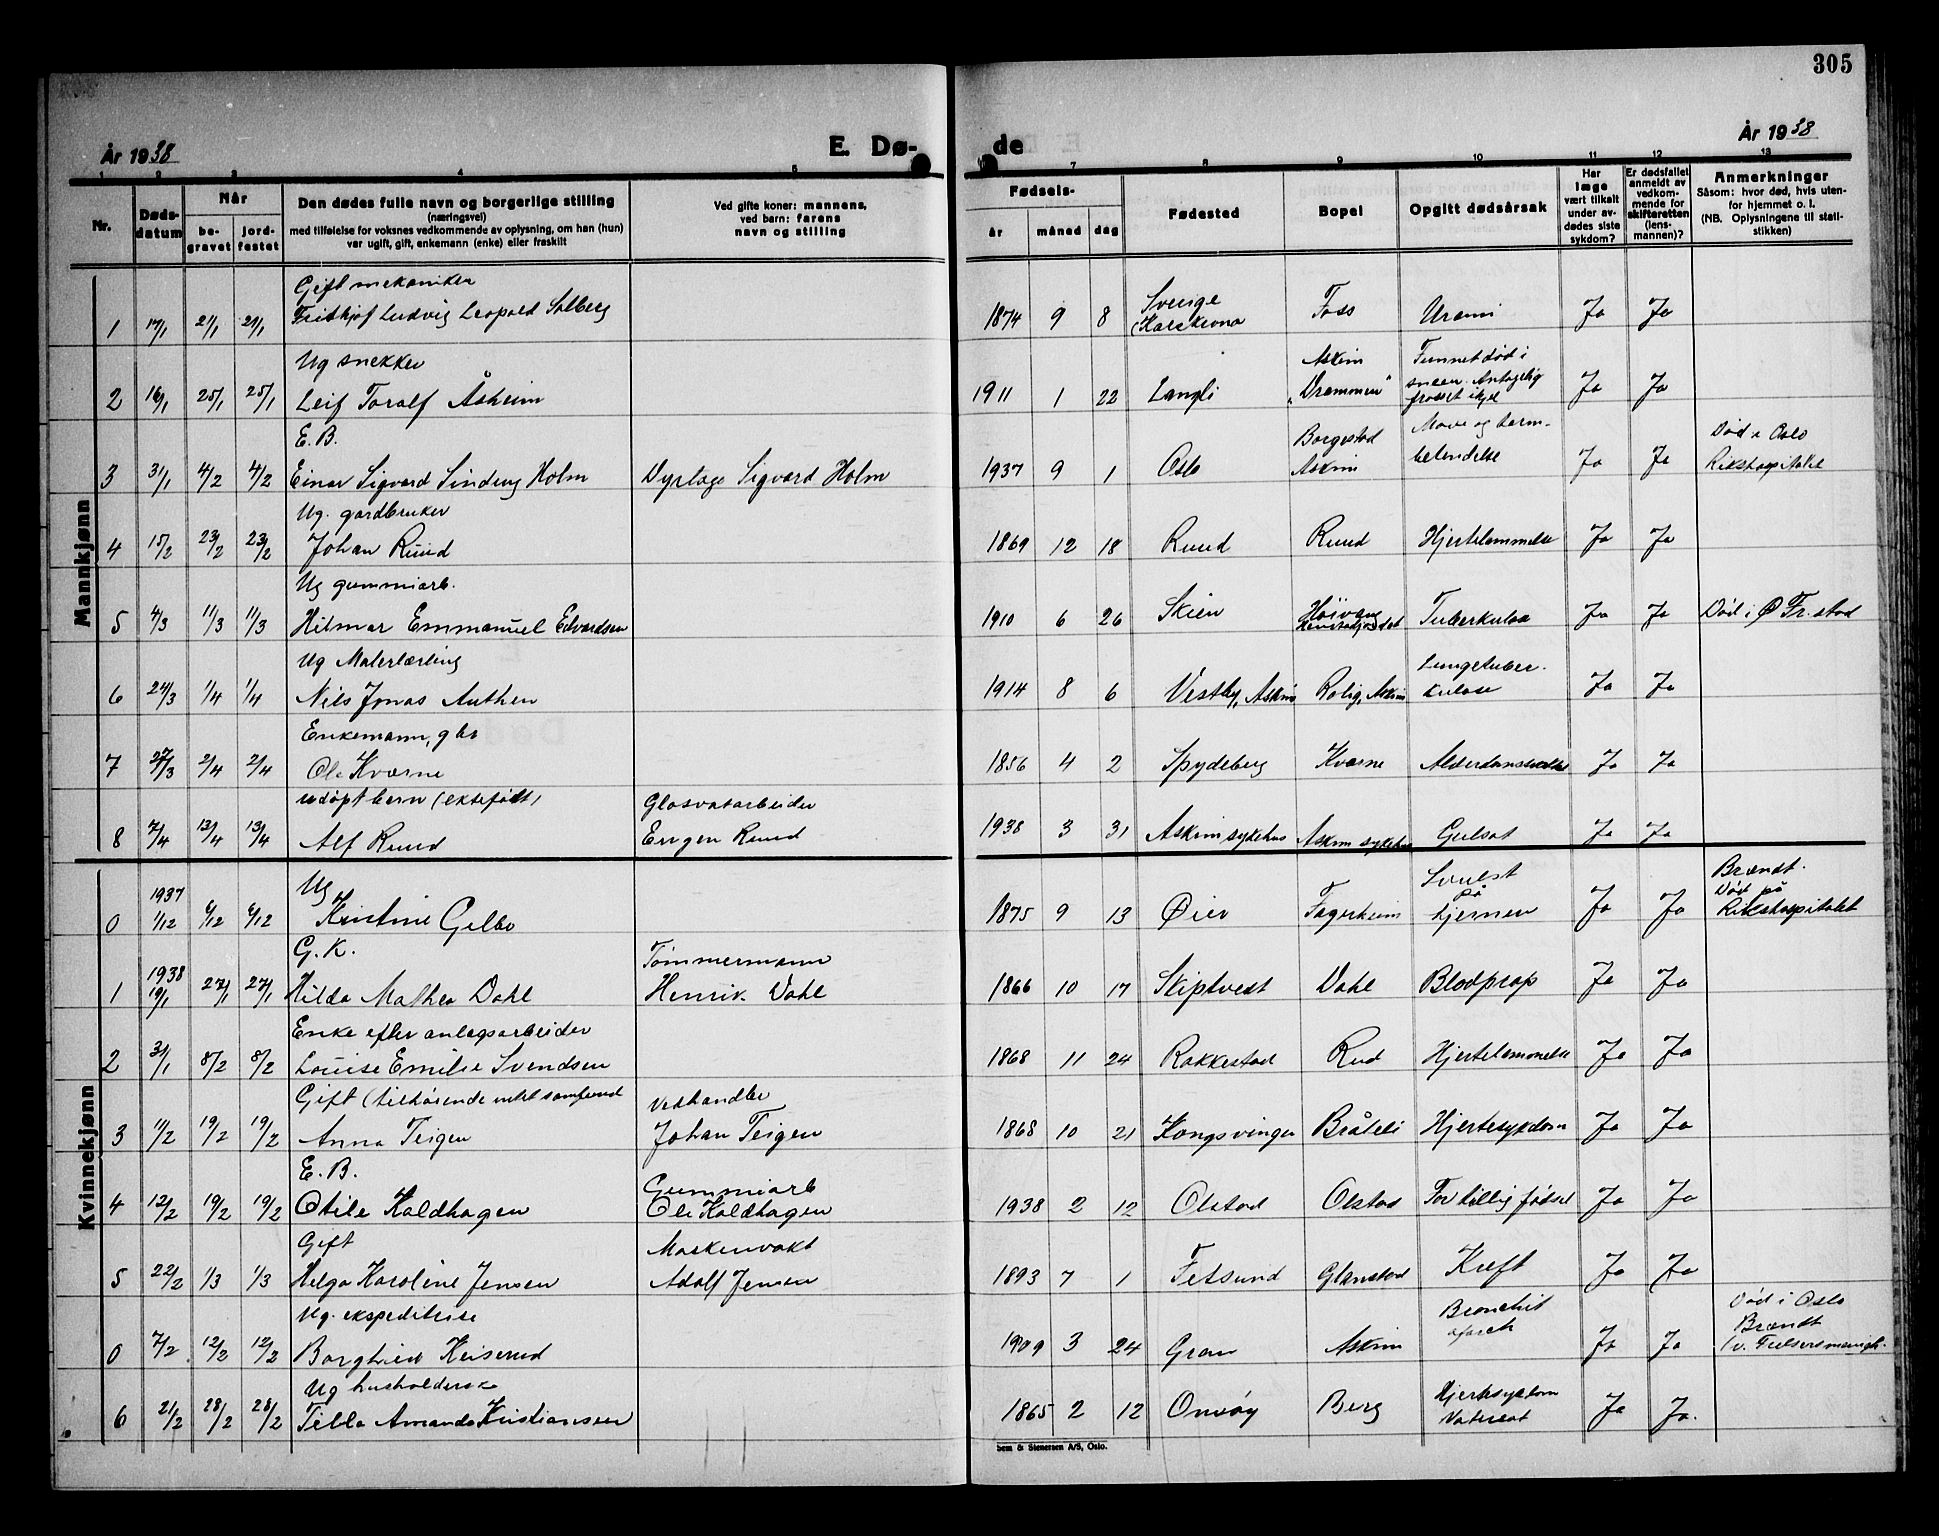 305
År 1938
E. Dø-
de
År 1938
1 2 3 4 5 7 8 9 10 11 12 13
Nr.
Døds-
datum
Når
be-
gravet
jord-
festet
Den dødes fulle navn og borgerlige stilling
(næringsvei)
med tilføielse for voksnes vedkommende av oplysning, om han (hun)
var ugift, gift, enkemann (enke) eller fraskilt
Ved gifte koner: mannens,
ved barn: farens
navn og stilling
Fødsels-
år måned dag
Fødested
Bopel
Opgitt dødsårsak
Har
læge
vært tilkalt
under av-
dødes siste
sykdom?
Er dødsfallet
anmeldt av
vedkom-
mende for
skifteretten
(lens-
mannen)?
Anmerkninger
Såsom: hvor død, hvis uten-
for hjemmet o. l.
(NB. Oplysningene til stati-
stikken)
Mannkjønn
Gift mekaniker
1 17/1 21/1 21/1 Fridthjof Ludvig Leopold Solberg 1874 9 8 Sverige (Karskrona Foss Uremi Ja Ja
Ug snekker
2 16/1 25/1 25/1 Leif Toralf Åsheim 1911 1 22 Langli Askim "Drammen" Funnet død i sneen. Antagelig frosset ihjel Ja Ja
E. B.
3 31/1 4/2 4/2 Einar Sigvard Sinding Holm Dyrlæge Sigvard Holm 1937 9 1 Oslo Borgestad Askim Mave og tarm-betendelse Ja Ja Død i Oslo Rikshospitalet
Ug. gardbruker
4 15/2 23/2 23/2 Johan Ruud 1869 12 18 Ruud Ruud Hjertelammelse Ja Ja
Ug gummiarb.
5 4/3 11/3 11/3 Hilmar Emmanuel Edvardsen 1910 6 26 Skien Høivang Tuberkulose Ja Ja Død i Fr.stad
Ug Malerlærling
6 24/3 1/4 1/4 Nils Jonas Authen 1914 8 6 Vestby, Askim Rolig, Askim Lungetuber-kulose Ja Ja
Enkemann, gbr
7 27/3 2/4 2/4 Ole Kværne 1856 4 2 Spydeberg Kværne Alderdomssvakhet Ja Ja
udøpt barn (ektefødt)
Glasvatarbeider
8 7/4 13/4 13/4 Alf Ruud Eugen Ruud 1938 3 31 Askim sykehus Askim sykehus Gulsot Ja Ja
Kvinnekjønn
Ug
0 1937 1/12 6/12 6/12 Kristine Gelbo 1875 9 13 Øier Fagerheim Svulst på hjernen Ja Ja Brændt. Død på Rikshospitalet
G. K.
Tømmermann
1 1938 19/1 27/1 27/1 Hilda Mathea Dahl Henrik Dahl 1866 10 17 Skiptvedt Dahl Blodprop Ja Ja
Enke efter anlegsarbeider
2 31/1 8/2 8/2 Louise Emilie Svendsen 1868 11 24 Rakkestad Rud Hjertelammelse Ja Ja
Gift (tilhørende intet samfund
Vedhandler
3 11/2 19/2 19/2 Anna Teigen Johan Teigen 1868 10 21 Kongsvinger Bråteli Hjertesykdom Ja Ja
E. B.
Gummiarb
4 12/2 19/2 19/2 Otile Kaldhagen Ole Kaldhagen 1938 2 12 Olstad Olstad For tillig fødsel Ja Ja
Gift
Maskenvakt
5 22/2 1/3 1/3 Helga Karoline Jensen Adolf Jensen 1893 7 1 Fetsund Glenstad Kreft Ja Ja
Ug. ekspeditrise
0 7/2 12/2 12/2 Borghild Keiserud 1909 3 24 Gran Askim Bronchit Ja Ja Død i Oslo Brændt
Ug husholderske
6 21/2 28/2 28/2 Tilla Amanda Kristiansen 1865 2 12 Onsøy Berg Hjertesykdom Vatersot Ja Ja.
Sem & Stenersen A/S, Oslo.